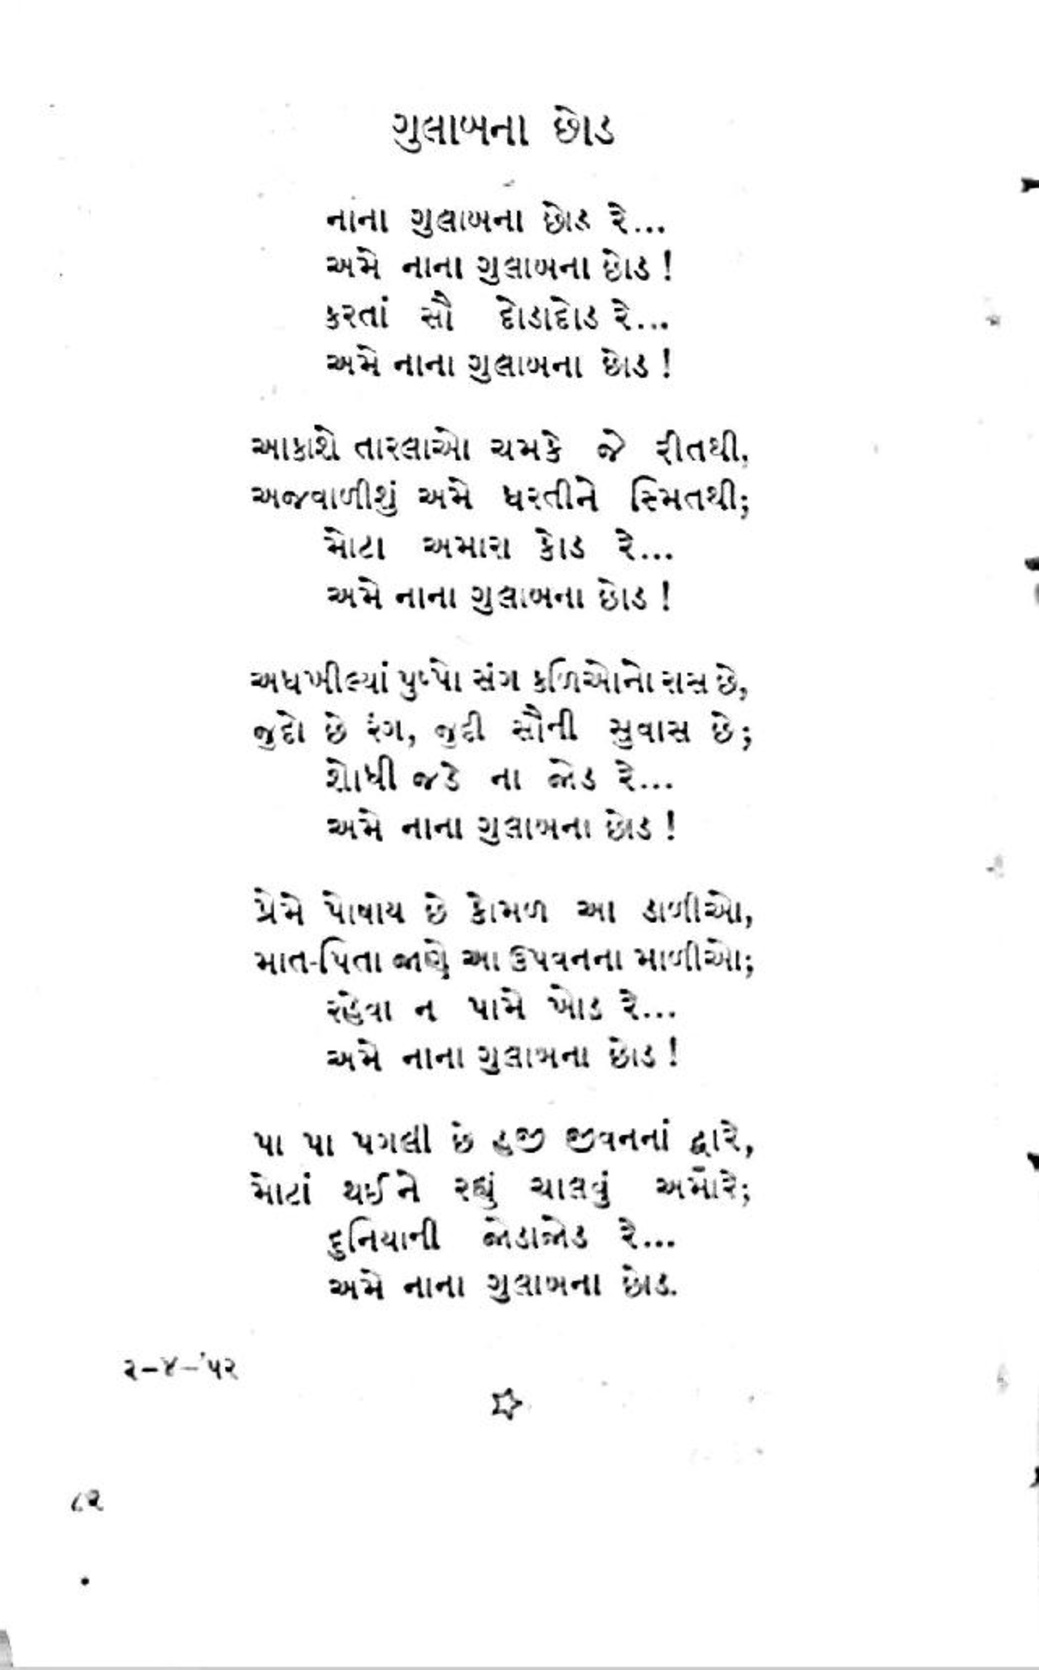 ગુલાબના છોડ
નાના ગુલાબના છોડ રે...
અમે નાના ગુલાબના છોડ !
કરતાં સૌ દોડાદોડ રે...
અમે નાના ગુલાબના છોડ !
આકાશે તારલાઓ ચમકે જે રીતથી,
અજવાળીશું અમે ધરતીને સ્મિતથી;
મોટા અમારા કોડ રે...
અમે નાના ગુલાબના છોડ !
અધખીલ્યાં પુષ્પો સંગ કળિઓનો રાસ છે,
જુદો છે રંગ, જુદી સૌની સુવાસ છે;
શોધી જડે ના જોડ રે...
અમે નાના ગુલાબના છોડ !
પ્રેમે પોષાય છે કોમળ આ ડાળીઓ,
માત-પિતા જાણે આ ઉપવનના માળીઓ;
રહેવા ન પામે ખોડ રે...
અમે નાના ગુલાબના છોડ !
પા પા પગલી છે હજી જીવનનાં દ્વારે,
મોટાં થઈને રહ્યું ચાલવું અમારે;
દુનિયાની જોડાજોડ રે...
અમે નાના ગુલાબના છોડ.
૨-૪-'૫૨
૮૨